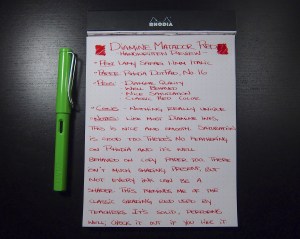 RHODIA
Diamine Matador Red
Handwritten Review
- Pen: Lamy Safari 1.1mm Italic
- Paper: Rhodia DotPad, No. 16
- Pros: Diamine Quality
Well Behaved
Nice Saturation
Classic Red Color
- Cons: Nothing Really Unique
- Notes: Like most Diamine inks
this is nice and smooth. Saturation
is good too. There's no feathering
on Rhodia and it's well
behaved on copy paper too. There
isn't much shading present, but
not every ink can be a
shader. This reminds me of the
classic grading ink used by
teachers. It's solid, performs
well, check it out if you like it